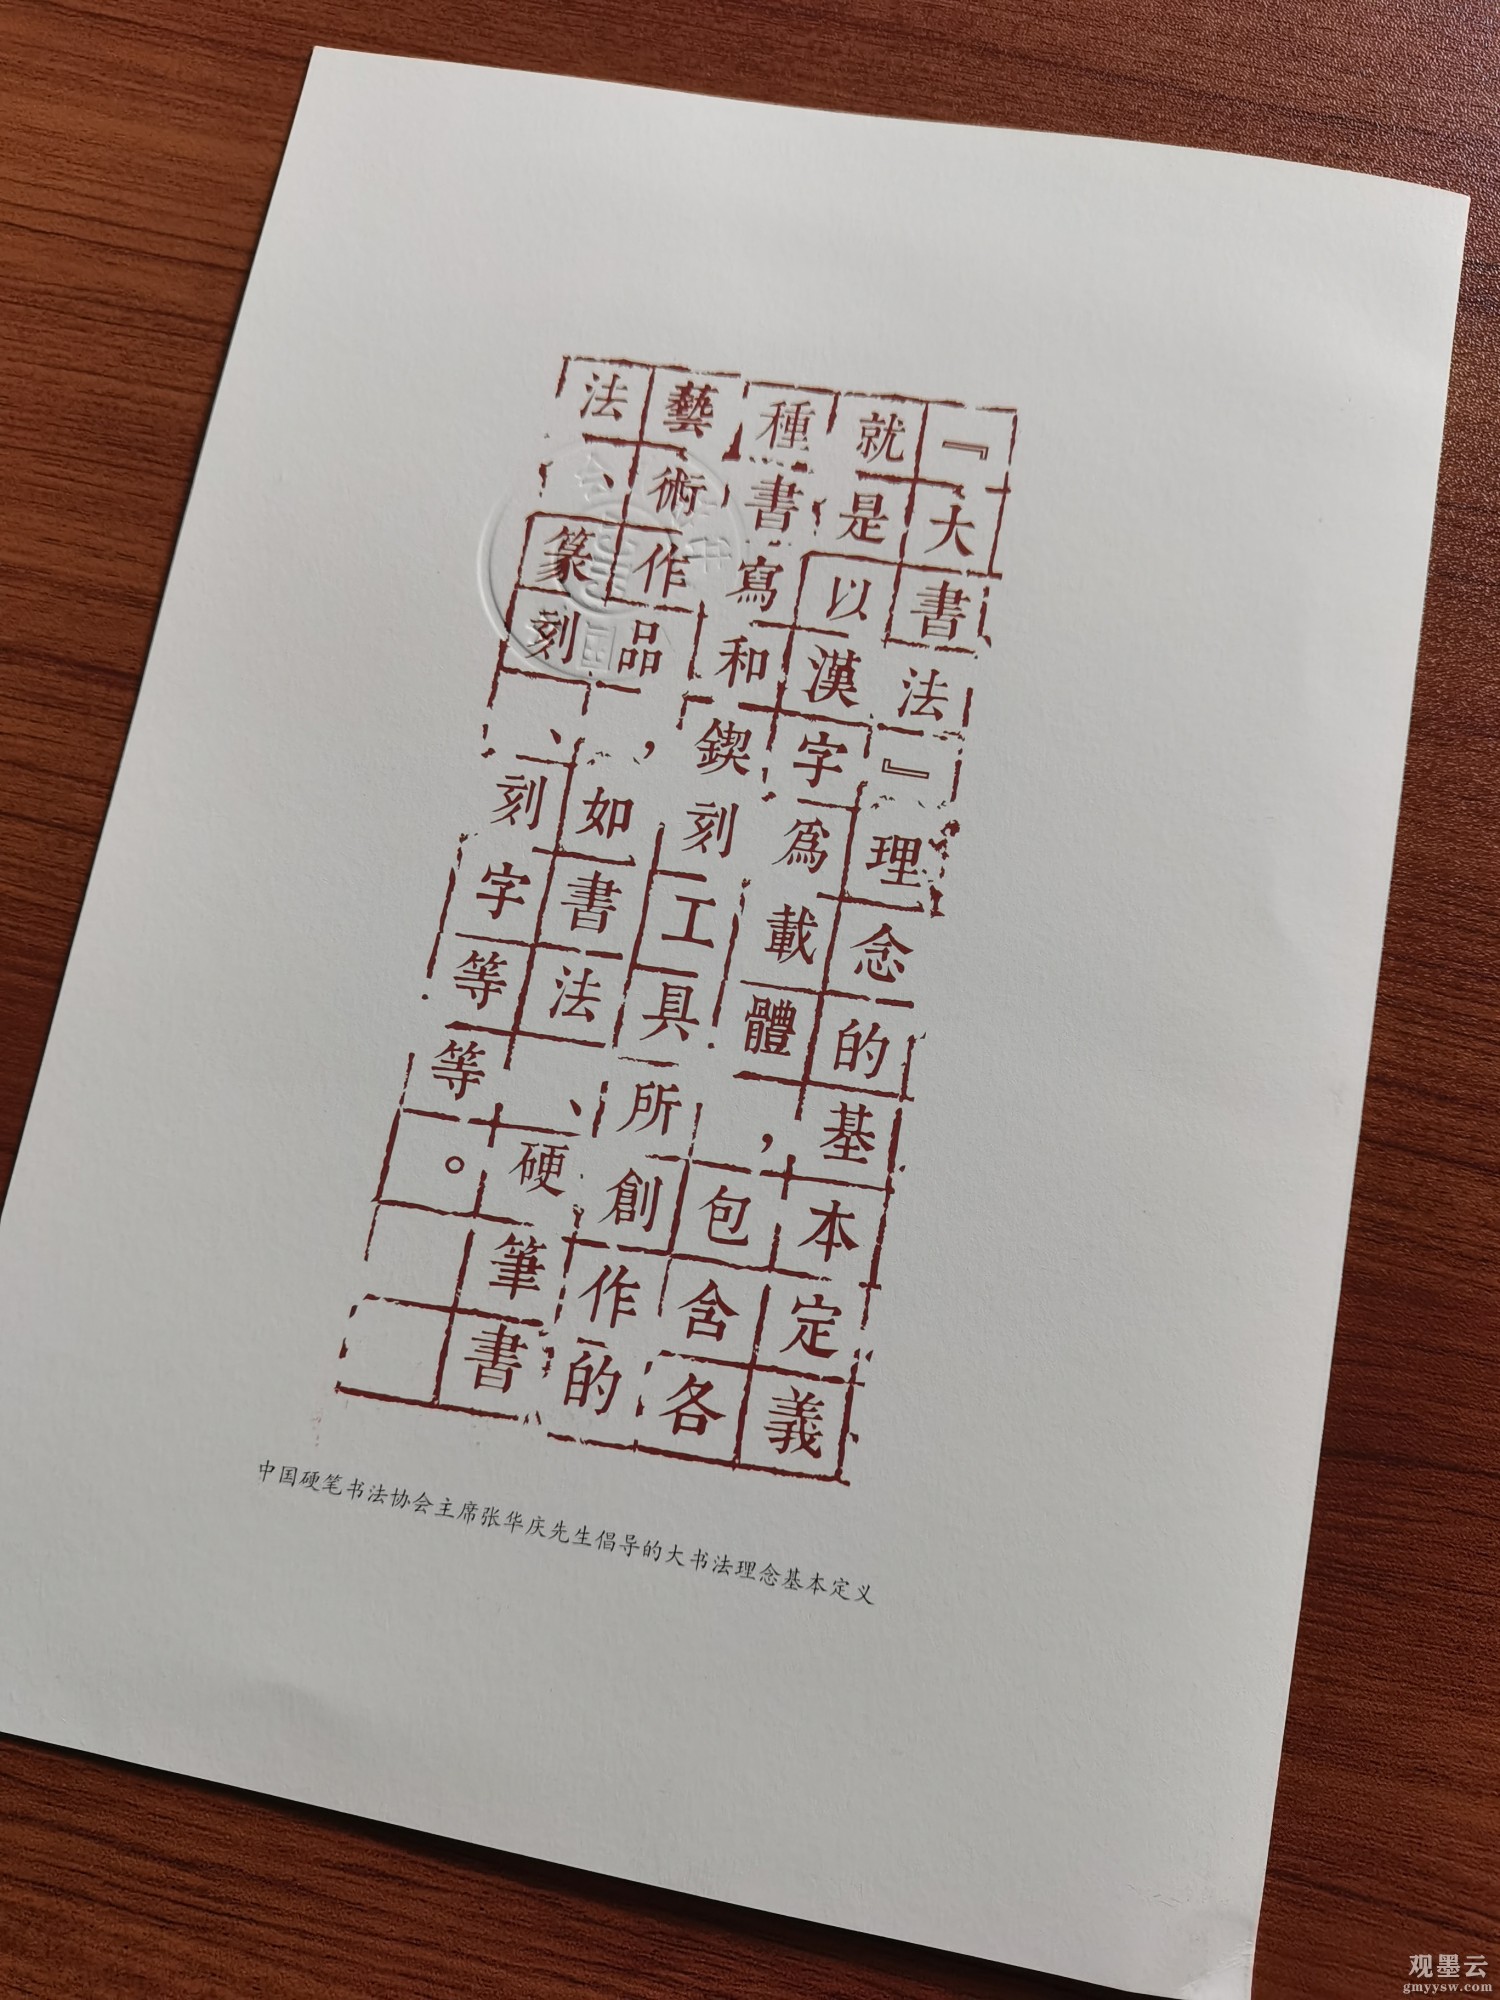 『大書法』理念的基本定義
就是以漢字為載體，包含各
種書寫和鍥刻工具所創作的
藝術作品，如書法、硬筆書
法、篆刻、刻字等等。
中国硬笔书法协会主席张华庆先生倡导的大书法理念基本定义
观墨云
gmyysw.com